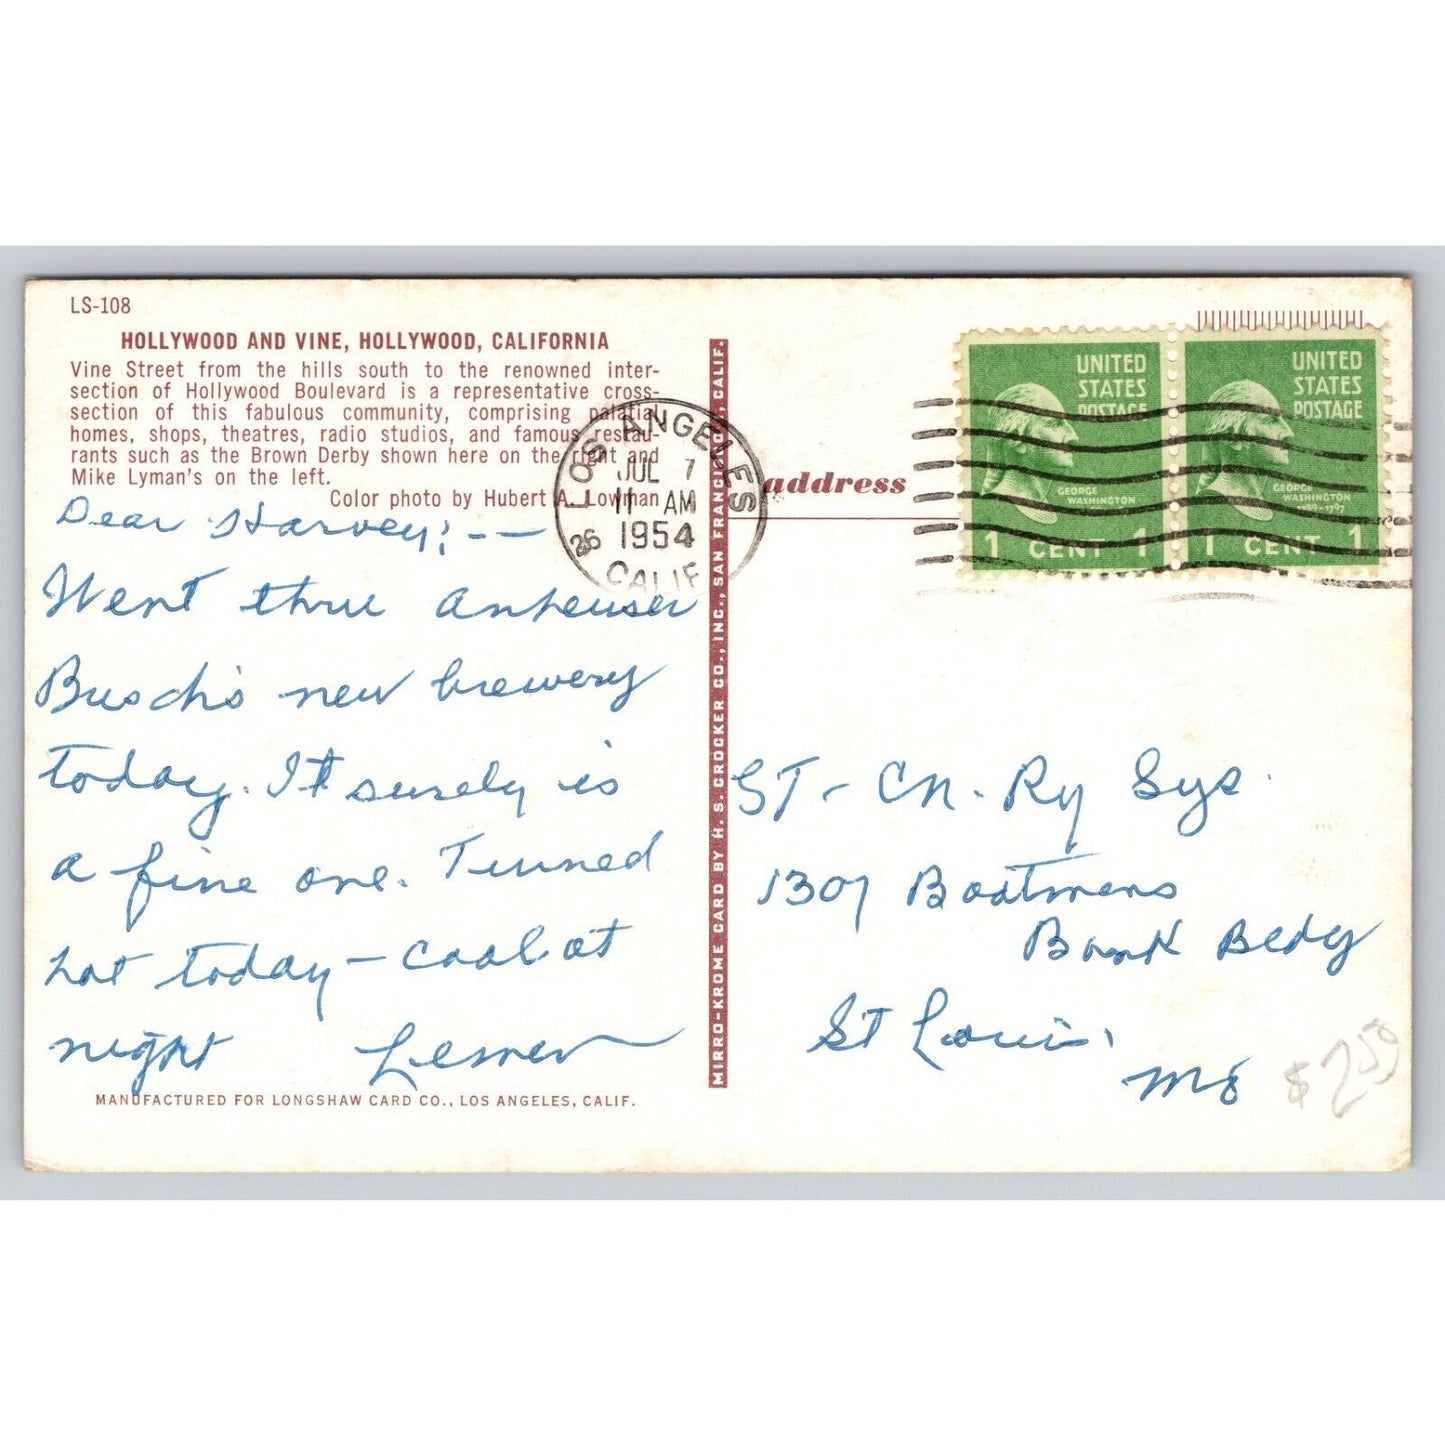 LS-108
HOLLYWOOD AND VINE, HOLLYWOOD, CALIFORNIA
Vine Street from the hills south to the renowned inter-
section of Hollywood Boulevard is a representative cross-
section of this fabulous community, comprising palatial
homes, shops, theatres, radio studios, and famous restau-
rants such as the Brown Derby shown here on the right and
Mike Lyman's on the left.
Color photo by Hubert A. Lowman
Dear Harvey:--
Went thru Anheuser
Busch's new brewery
today. It surely is
a fine one. Turned
hot today - cool at
night
MANUFACTURED FOR LONGSHAW CARD CO., LOS ANGELES, CALIF.
MIRRO-KROME CARD BY H. S. CROCKER CO., INC., SAN FRANCISCO, CALIF.
LOS ANGELES
JUL 7
11 AM
1954
26 CALIF
address
UNITED
STATES
POSTAGE
GEORGE
WASHINGTON
1 CENT 1
UNITED
STATES
POSTAGE
GEORGE
WASHINGTON
1 CENT 1
ST - CN - Ry Sys.
1307 Boatmens
Bank Bldg
St Louis,
Mo
$2.50